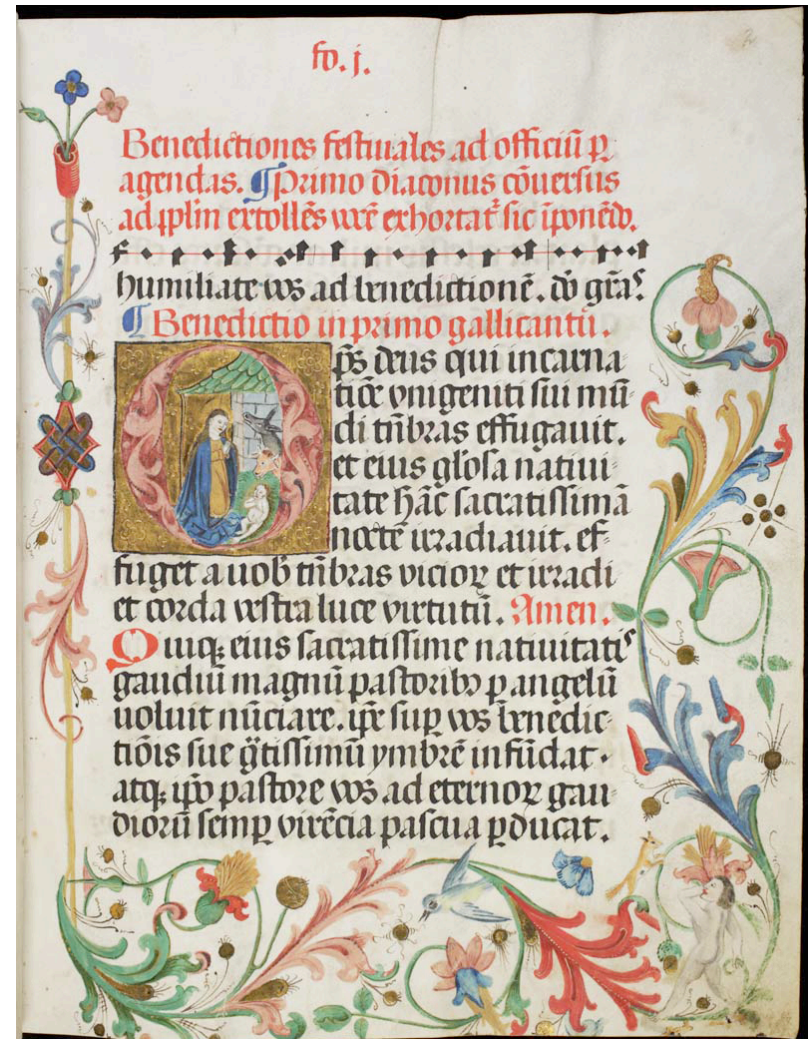 fo. j.
Benedictiones festiuales ad officiū ꝑ
agendas. ¶ Primo diaconus cōuersus
ad ꝓplm̄ extollēs vocē exhortat᷑ sic īponēdo.
humiliate vos ad benedictionē. do gr̄as.
¶ Benedictio in primo gallicantu.
Om̄ps deus qui incarna
tiōe vnigeniti sui mū
di tn̄bras effugauit.
et eius gl̓osa natiui
tate hāc sacratissimā
noctē irradiauit. ef
fuget a uob̄ tn̄bras vicioꝝ et irradi
et corda vestra luce virtutū. Amen.
Quiqꝫ eius sacratissime natiuitatis
gaudiū magnū pastoribꝰ ꝑ angelū
uoluit nūciare. ip̄e suꝑ vos benedic
tiōis sue gͣtissimū ymbrē infūdat.
atqꝫ ip̄o pastore vos ad eternoꝝ gau
dioꝝ semꝑ virēcia pascua ꝑducat.